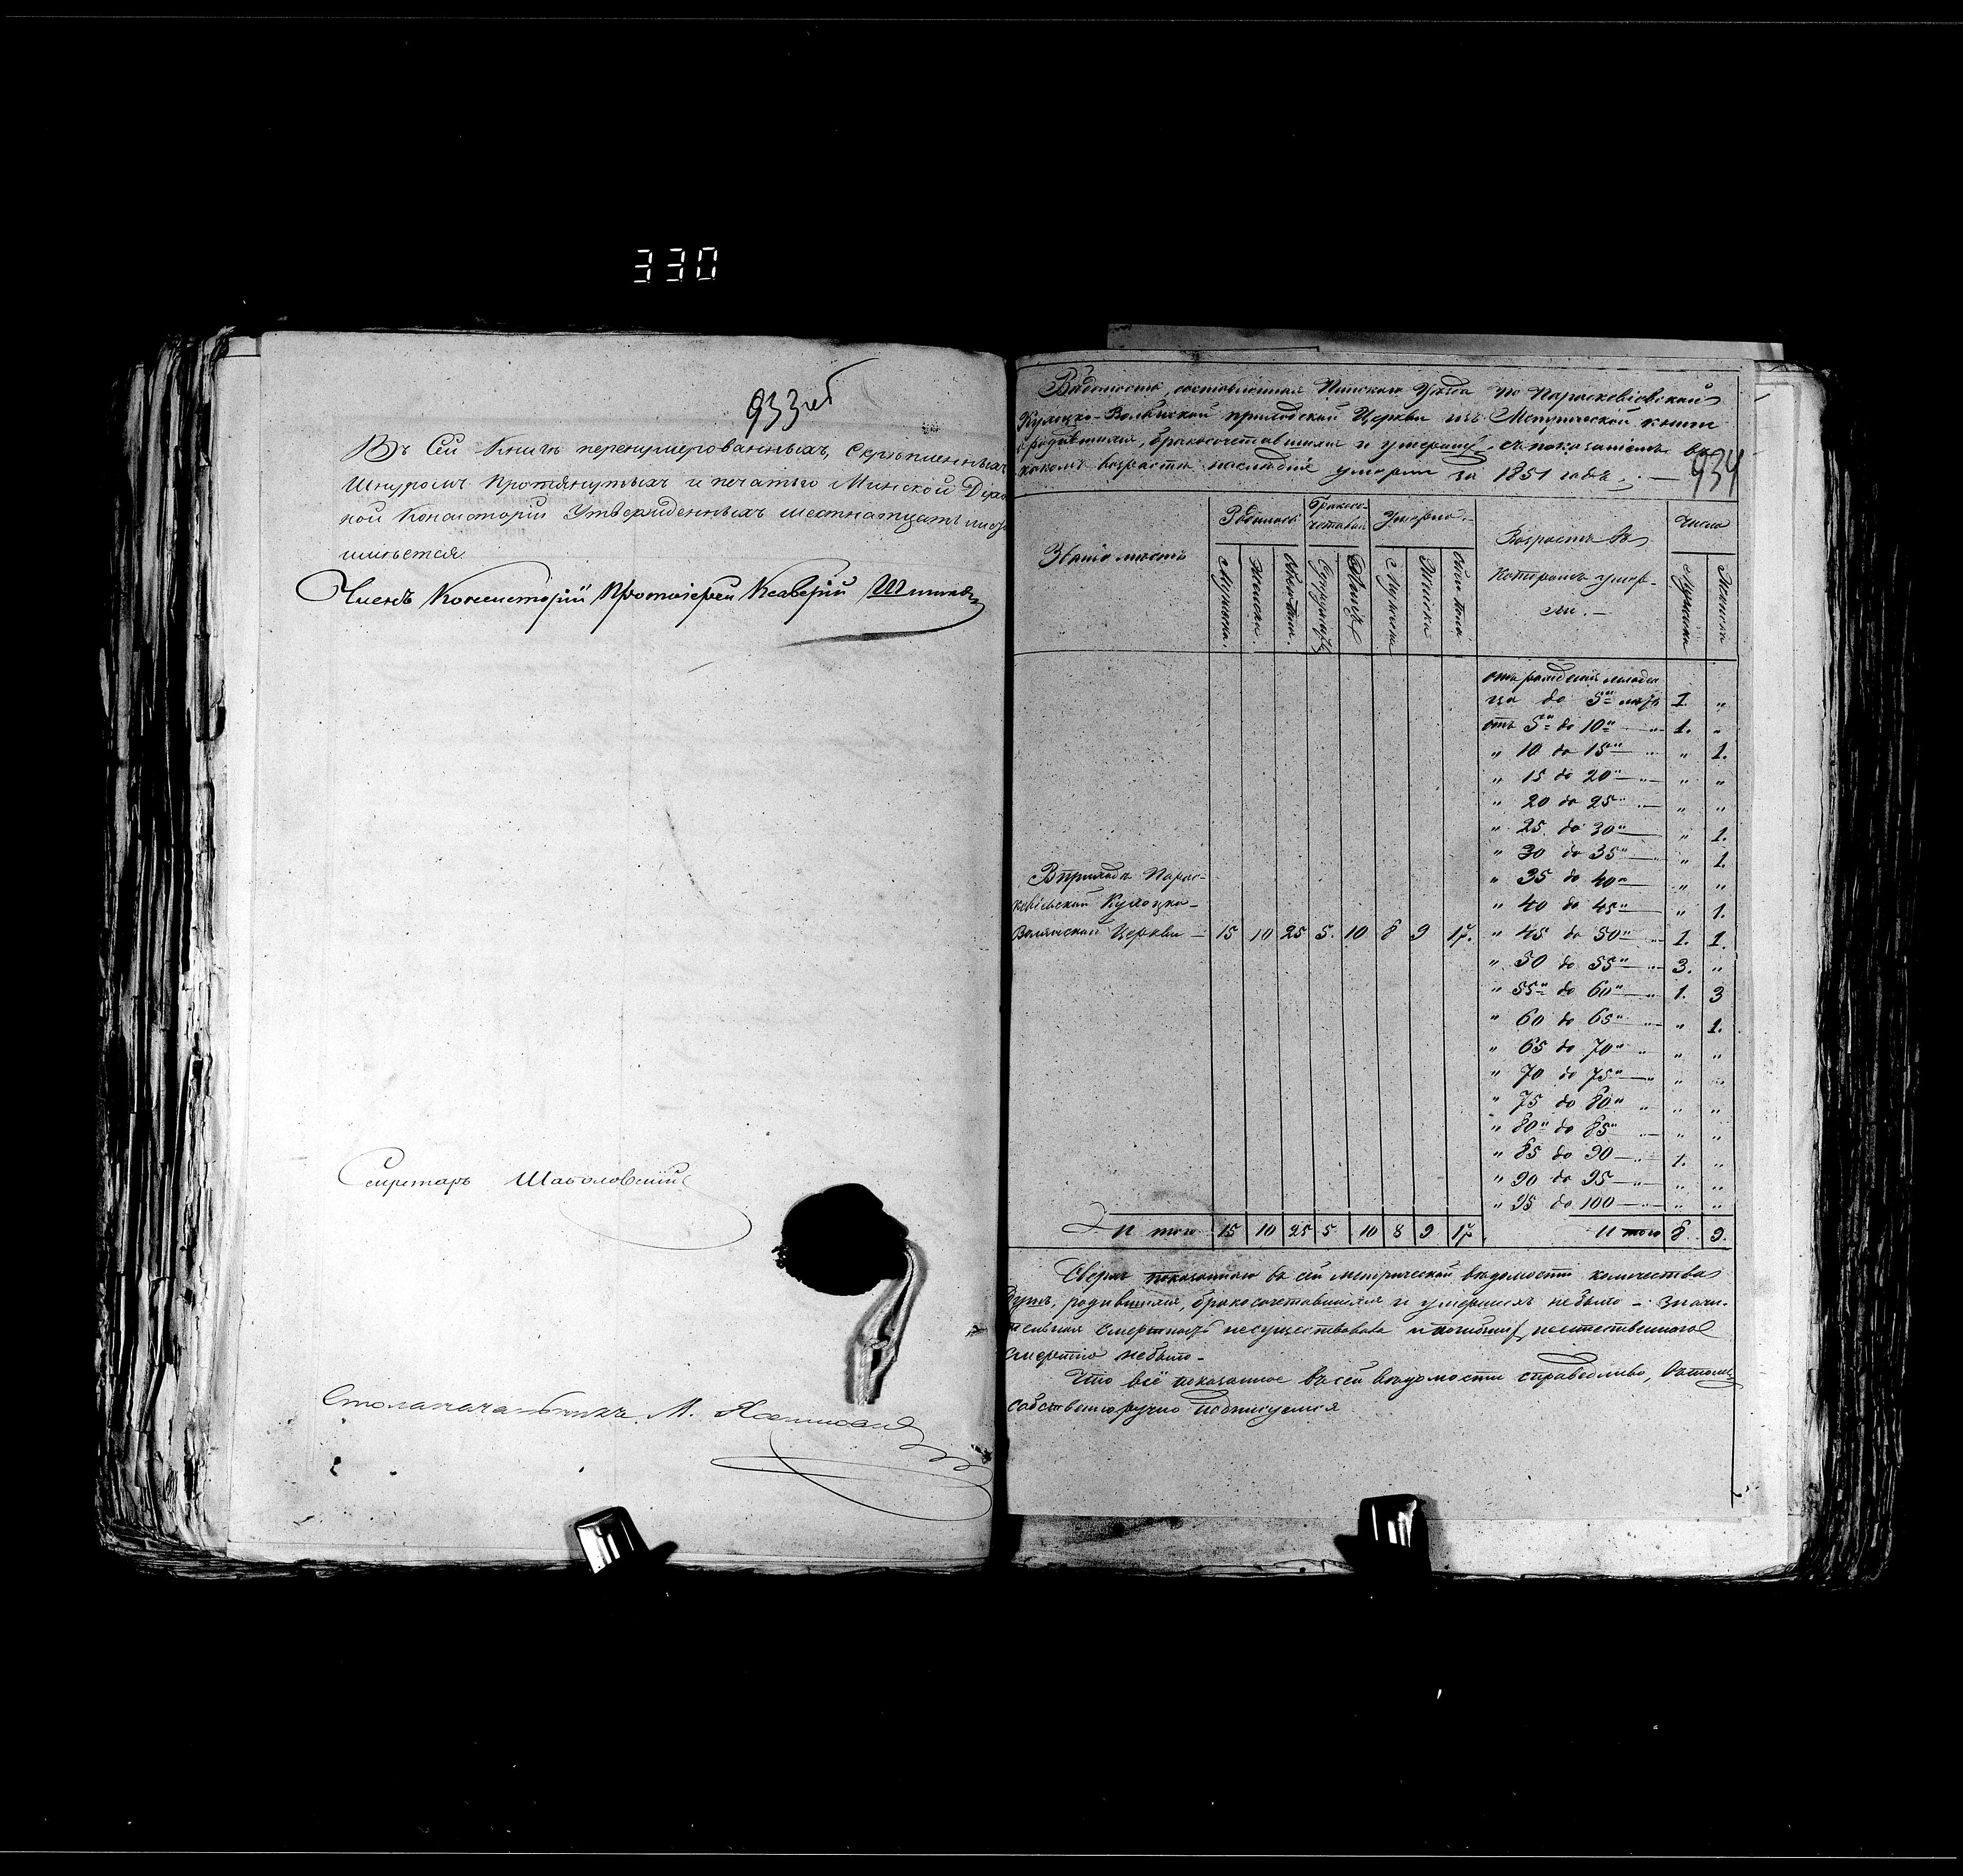 330
933 об
Въ сей Книгѣ перенумерованныхъ, скрѣпленныхъ
шнуромъ протянутыхъ и печатью Минской Духов
ной Консисторіи утвержденныхъ шестнатцать листо
имѣется
Членъ Консисторіи Протоіерей Ксаверій
Секретарь
Столоначальникъ М.
934
Вѣдомость, составленная Пинскаго Уѣзда по Параскевіевской
приходской Церкви изъ Метрической книги
о родившихся, бракосочетавшихся и умершихъ, съ показаніемъ въ
какомъ возрастѣ послѣдніе умерли за 1851 годъ. —
Званіе мѣстъ
Родилось
Бракосо-
четовал
Умерло. —
Возрастъ въ
которомъ умер-
ли. —
Число
Мужеска.
Женска.
Обоего пола.
Супружествъ
Лицъ
Мужеска
Женска
Обоего пола.
Мужеска
Женска
отъ рожденія младен
ца до 5 лѣтъ 1. „
отъ 5 до 10 „ 1. „
„ 10 до 15 „ „ 1.
„ 15 до 20 „ „ „
„ 20 до 25 „ „ „
„ 25 до 30 „ „ 1.
„ 30 до 35 „ „ 1.
„ 35 до 40 „ „ „
„ 40 до 45 „ „ 1.
„ 45 до 50 „ 1. 1.
„ 50 до 55 „ 3. „
„ 55 до 60 „ 1. 3
„ 60 до 65 „ „ 1.
„ 65 до 70 „ „ „
„ 70 до 75 „ „ „
„ 75 до 80 „ „ „
„ 80 до 85 „ „ „
„ 85 до 90 „ 1. „
„ 90 до 95 „ „ „
„ 95 до 100 „ „ „
В приходѣ Парас-
кевіевской
Церкви — 15 10 25 5. 10 8 9 17.
И того 15 10 25 5 10 8 9 17
И того 8 9.
Сверхъ показаннаго въ сей метрической вѣдомости количества
Душъ, родившихся, бракосочетавшихся и умершихъ не было — значи-
тельная смертность несуществовала и погибшихъ неестественною
смертію небыло —
Что всё показанное въ сей вѣдомости справедливо, въ томъ
собственноручно подписуемся